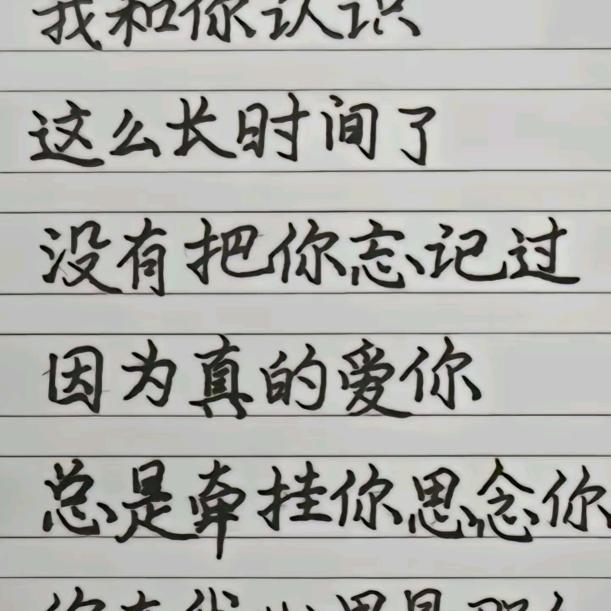 我和你认识
这么长时间了
没有把你忘记过
因为真的爱你
总是牵挂你思念你
你在我心里是